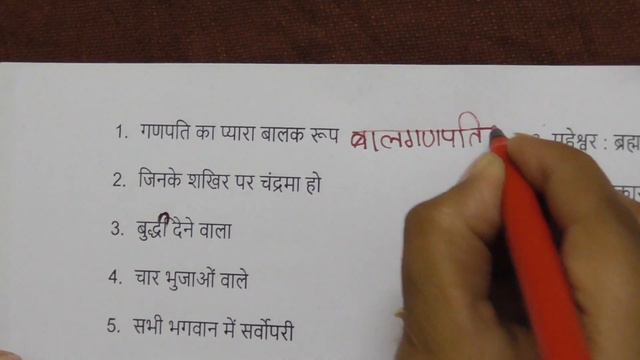 1. गणपति का प्यारा बालक रूप बालगणपति
महेश्वर : ब्रह्म
2. जिनके शखिर पर चंद्रमा हो
3. बुद्धी देने वाला
4. चार भुजाओं वाले
5. सभी भगवान में सर्वोपरी